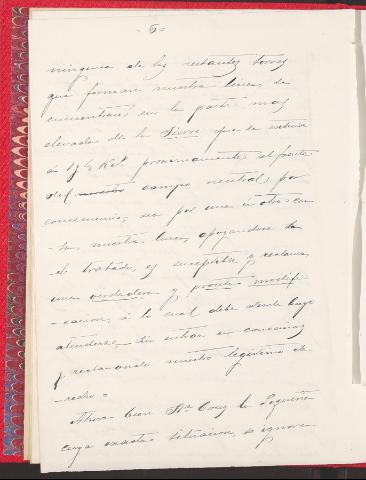 -6-
ninguna de las restantes torres
que forman nuestra linea, se
encuentran en la parte mas
elevada de la Sierra que se estiende
á 1 y ½ Kilº proximamente al frente
del campo neutral; por
consecuencia, sea por una ú otra cau
-sa, nuestra linea, apoyandose en
el tratado, es susceptible y reclama
una verdadera y pronta modifi
-cacion, á la cual debe desde luego
atenderse, sin entrar en convenios
y reclamando nuestro legitimo de
-recho=
Ahora bien Stª Cruz la Pequeña
cuya exacta situacion, se ignora